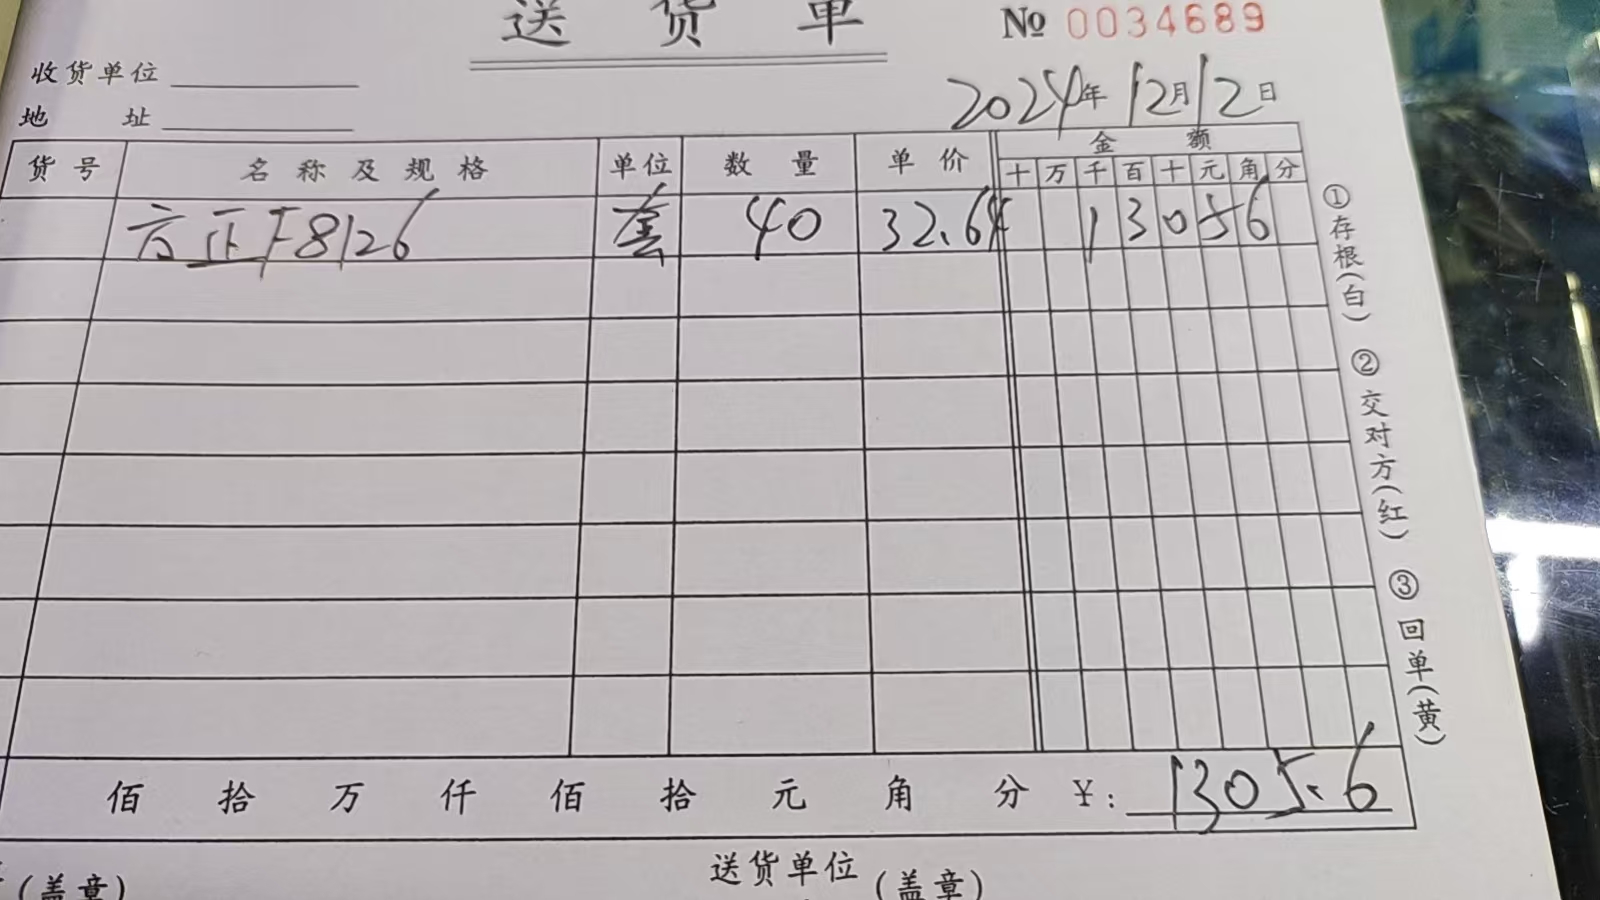 送货单
№ 0034689
收货单位
2024年12月12日
地址
货号 名称及规格 单位 数量 单价 金额
十 万 千 百 十 元 角 分
方正F8126 套 40 32.64 1 3 0 5 6
①存根(白) ②交对方(红) ③回单(黄)
佰 拾 万 仟 佰 拾 元 角 分 ¥: 1305.6
(盖章) 送货单位(盖章)